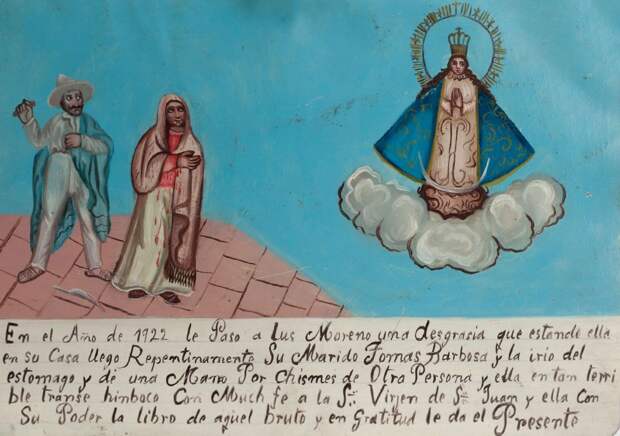 En el Año de 1922 le Paso a Lus Moreno una desgrasia que estando ella
en su Casa llego Repentinamento Su Marido Tomas Barbosa y la irio del
estomago y de una Mano Por Chismes de Otra Persona y ella en tan terri
ble transe hinboco Con Much fe a la S. Virjen de Sn Juan y ella Con
Su Poder la libro de aquel bruto y en Gratitud le da el Presente